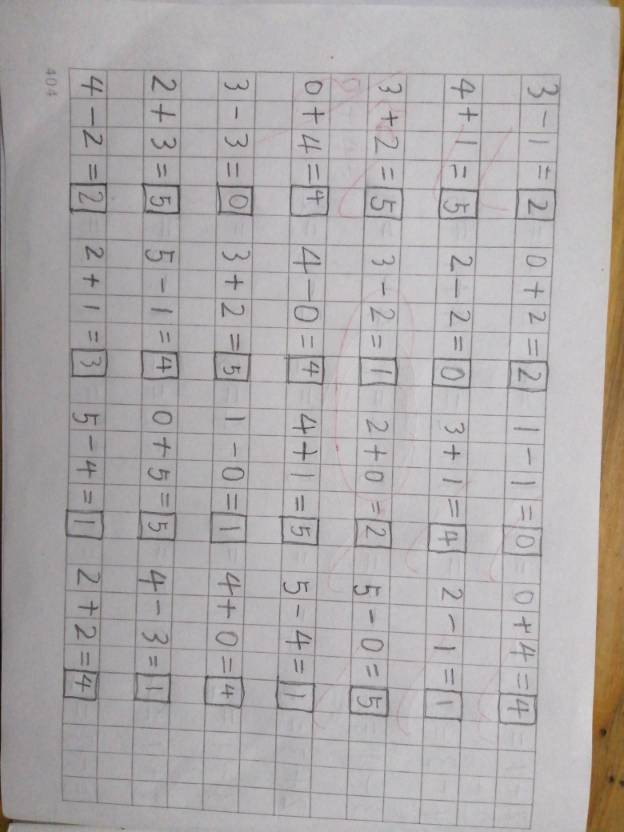 3-1=2 0+2=2 1-1=0 0+4=4
4+1=5 2-2=0 3+1=4 2-1=1
3+2=5 3-2=1 2+0=2 5-0=5
0+4=4 4-0=4 4+1=5 5-4=1
3-3=0 3+2=5 1-0=1 4+0=4
2+3=5 5-1=4 0+5=5 4-3=1
4-2=2 2+1=3 5-4=1 2+2=4
404